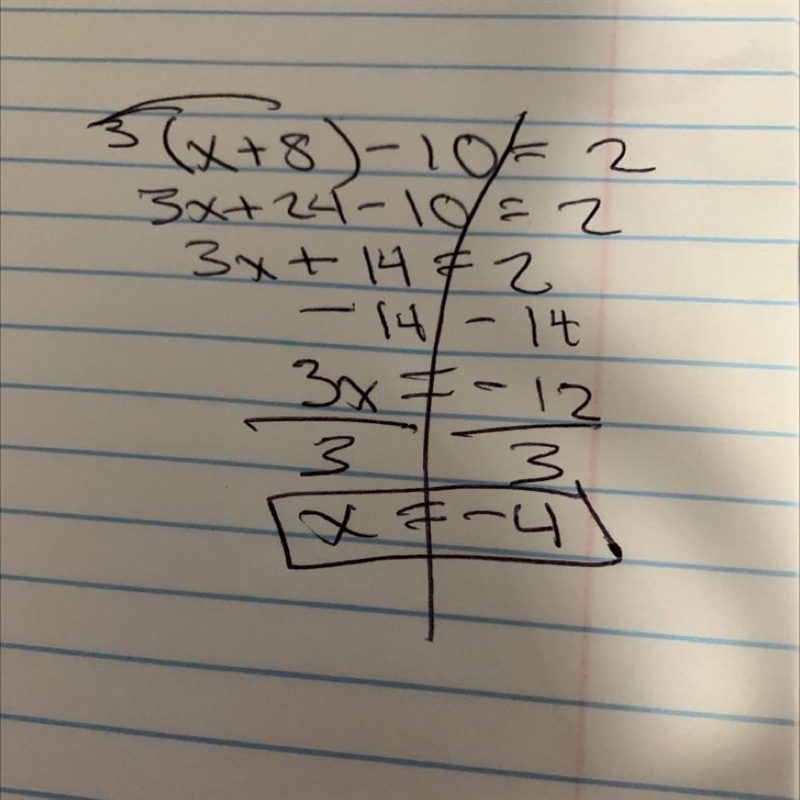 3(x+8)-10=2
3x+24-10=2
3x+14=2
-14 -14
3x=-12
3 3
x=-4